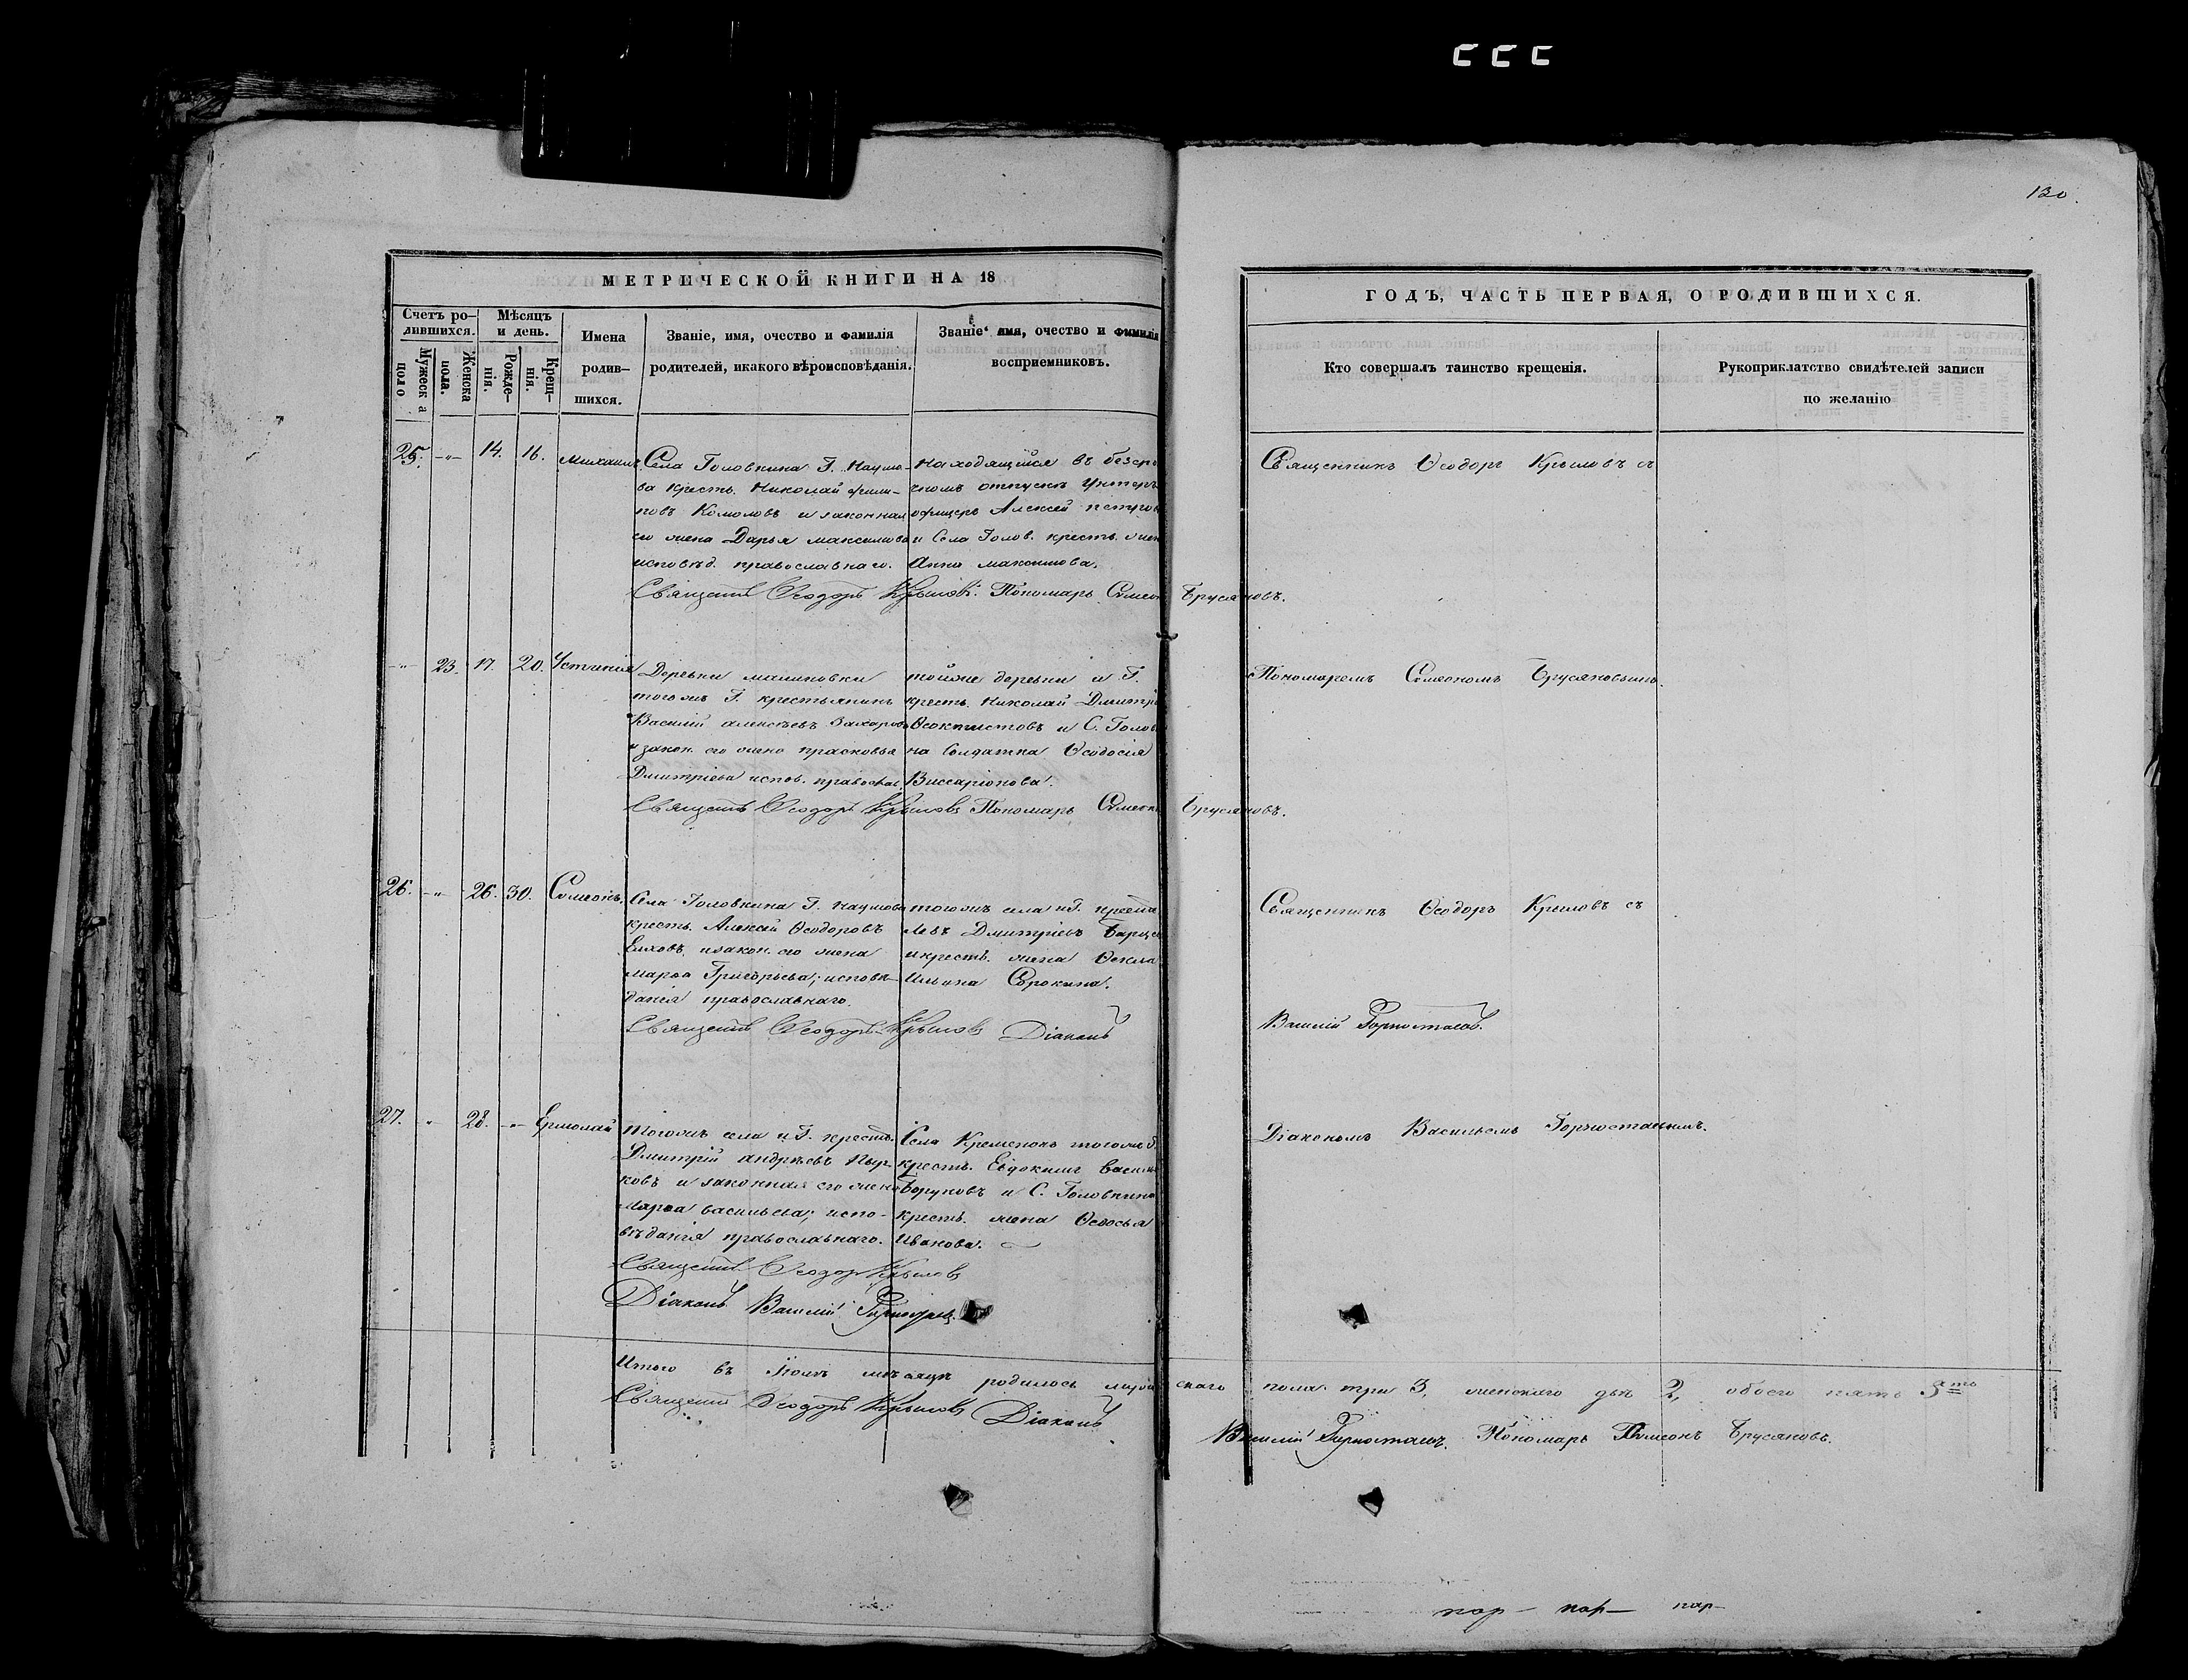 130.
МЕТРИЧЕСКОЙ КНИГИ НА 18
Счетъ ро-
дившихся.
Мужеска
поло
Женска
пола.
Мѣсяцъ
и день.
Рожде-
нія.
Крещ-
нія.
Имена
родив-
шихся.
Званіе, имя, очество и фамилія
родителей, икакого вѣроисповѣданія.
Званіе имя, очество и фамилія
восприемниковъ.
ГОДЪ, ЧАСТЬ ПЕРВАЯ, О РОДИВШИХСЯ.
Кто совершалъ таинство крещенія.
Рукоприклатство свидѣтелей записи
по желанію
25. -"- 14. 16. Михаилъ
Села Головкина Г. Наумо-
ва кресть. Николай Фили-
повъ Комоловъ и законная
его жена Дарья Максимова
исповѣд. православнаго.
Находящійся въ безср
чномъ отпускѣ Унтеръ
офицеръ Алексей Петров
и Села Голов. кресть. жен
Анна Максимова.
Священникъ Ѳеодоръ Крыловъ съ
Священ Ѳеодоръ Крыловъ. Пономарь Симеон Брусяновъ.
-"- 23. 17. 20. Устинія
Деревни Малиновки
тогожъ Г. крестьянинъ
Василій Алексѣевъ Захаров
и закон. его жена Прасковья
Дмитріева испов. православ
тойже деревни и Г.
кресть. Николай Дмитрі
Ѳеоктистовъ и С. Голов
на Солдатка Ѳеодосія
Виссаріонова.
Пономаремъ Симеономъ Брусяновымъ.
Священ Ѳеодоръ Крыловъ Пономарь Симеон Брусяновъ.
26. -"- 26. 30. Симеонъ
Села Головкина Г. Наумова
кресть. Алексей Ѳеодоровъ
изакон. его жена
Марѳа Григорьева; исповѣ-
данія православнаго.
тогожъ села иГ. кресть
Левъ Дмитріевъ
икресть. жена Ѳекла
Ильина Сорокина.
Священникъ Ѳеодоръ Крыловъ съ
Священ Ѳеодоръ Крыловъ Діаконъ
Василій Горностаевъ.
27. " 28. -"- Ермолай
Тогожъ села иГ. кресть.
Дмитрій Андрѣевъ Пыр-
ковъ и законная его жена
Марѳа Васильева; испо-
вѣданія православнаго.
Села Кременокъ тогожъ Г.
кресть. Евдокимъ Васил
Боруновъ и С. Головкина
кресть. жена Ѳедосья
Иванова.
Діакономъ Васильемъ Горностаевымъ.
Священ Ѳеодоръ Крыловъ
Діаконъ Василій Горностаевъ.
Итого въ Іюлѣ мѣсяцѣ родилось мужескаго пола три 3, женскаго двѣ 2, обоего пять 5ть
Священ Ѳеодоръ Крыловъ Діаконъ
Василій Горностаевъ. Пономарь Симеонъ Брусяновъ.